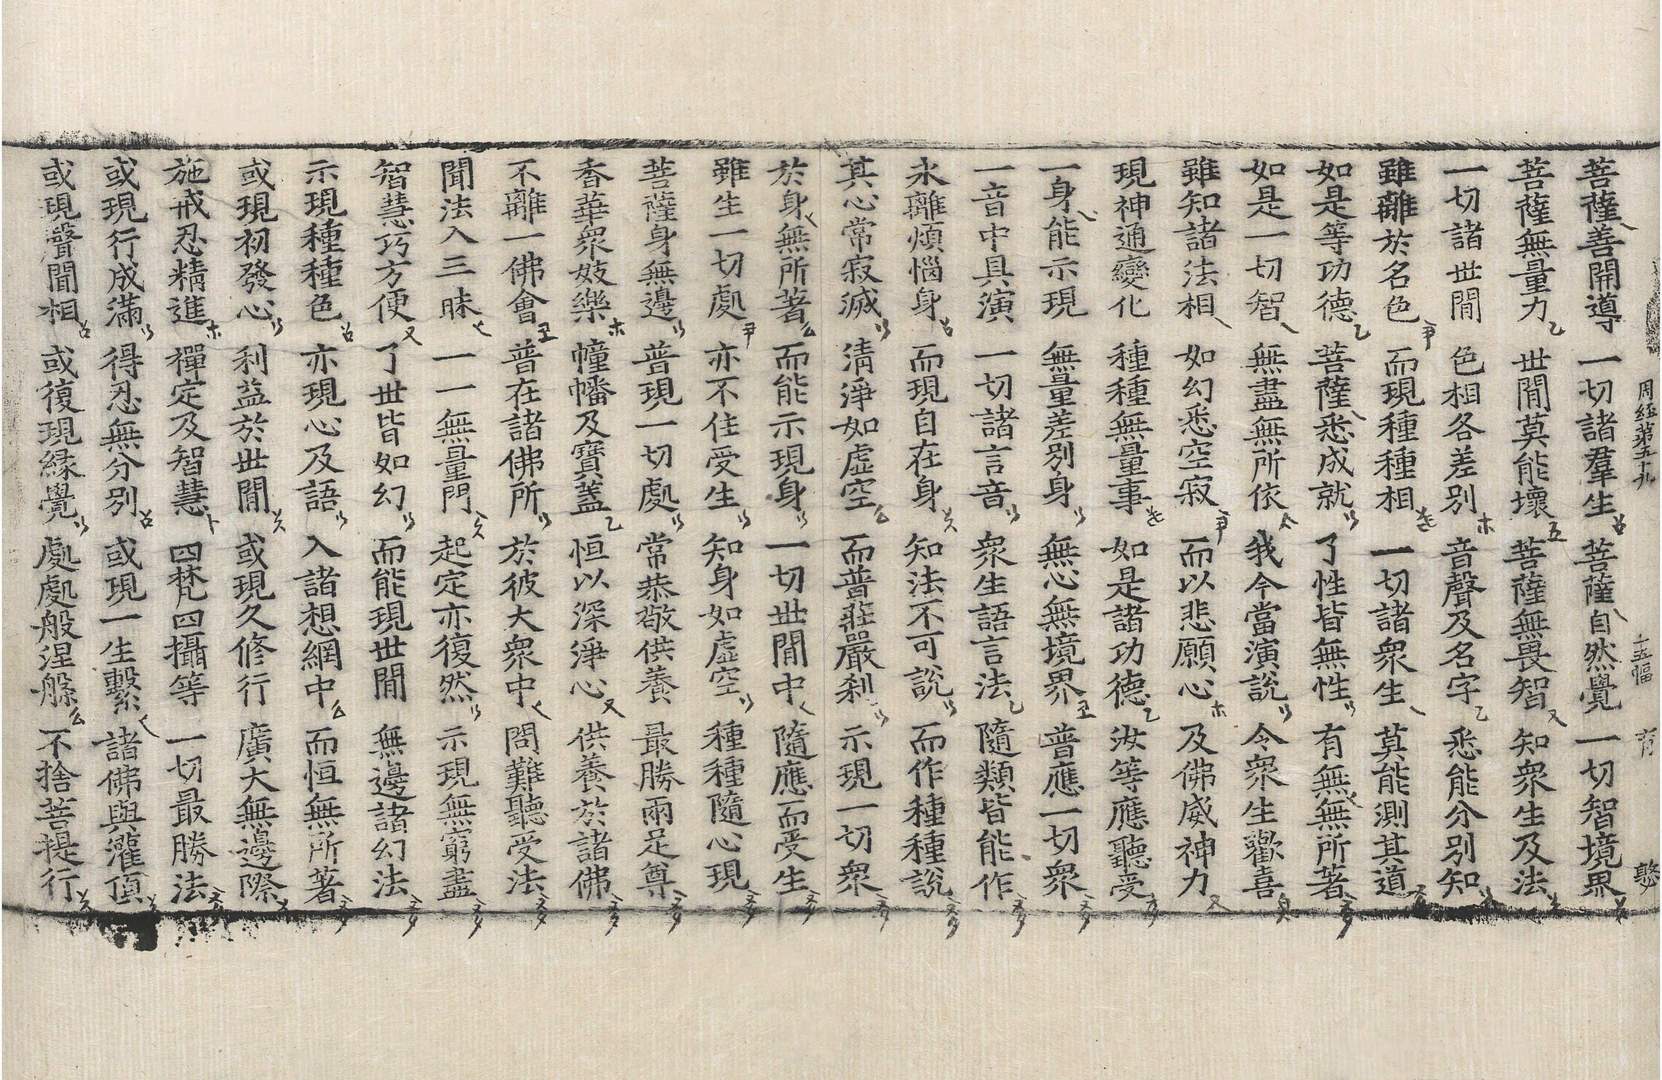 周經第五十九 十五幅 育 愍
菩薩善開導 一切諸羣生 菩薩自然覺 一切智境界
菩薩無量力 世間莫能壞 菩薩無畏智 知衆生及法
一切諸世間 色相各差別 音聲及名字 悉能分別知
雖離於名色 而現種種相 一切諸衆生 莫能測其道
如是等功德 菩薩悉成就 了性皆無性 有無無所著
如是一切智 無盡無所依 我今當演說 令衆生歡喜
雖知諸法相 如幻悉空寂 而以悲願心 及佛威神力
現神通變化 種種無量事 如是諸功德 汝等應聽受
一身能示現 無量差別身 無心無境界 普應一切衆
一音中具演 一切諸言音 衆生語言法 隨類皆能作
永離煩惱身 而現自在身 知法不可說 而作種種說
其心常寂滅 淸淨如虛空 而普莊嚴刹 示現一切衆
於身無所著 而能示現身 一切世間中 隨應而受生
雖生一切處 亦不住受生 知身如虛空 種種隨心現
菩薩身無邊 普現一切處 常恭敬供養 最勝兩足尊
香華衆妓樂 幢幡及寶蓋 恒以深淨心 供養於諸佛
不離一佛會 普在諸佛所 於彼大衆中 問難聽受法
聞法入三昧 一一無量門 起定亦復然 示現無窮盡
智慧巧方便 了世皆如幻 而能現世間 無邊諸幻法
示現種種色 亦現心及語 入諸想網中 而恒無所著
或現初發心 利益於世間 或現久修行 廣大無邊際
施戒忍精進 禪定及智慧 四梵四攝等 一切最勝法
或現行成滿 得忍無分別 或現一生繫 諸佛與灌頂
或現聲聞相 或復現緣覺 處處般涅槃 不捨菩提行